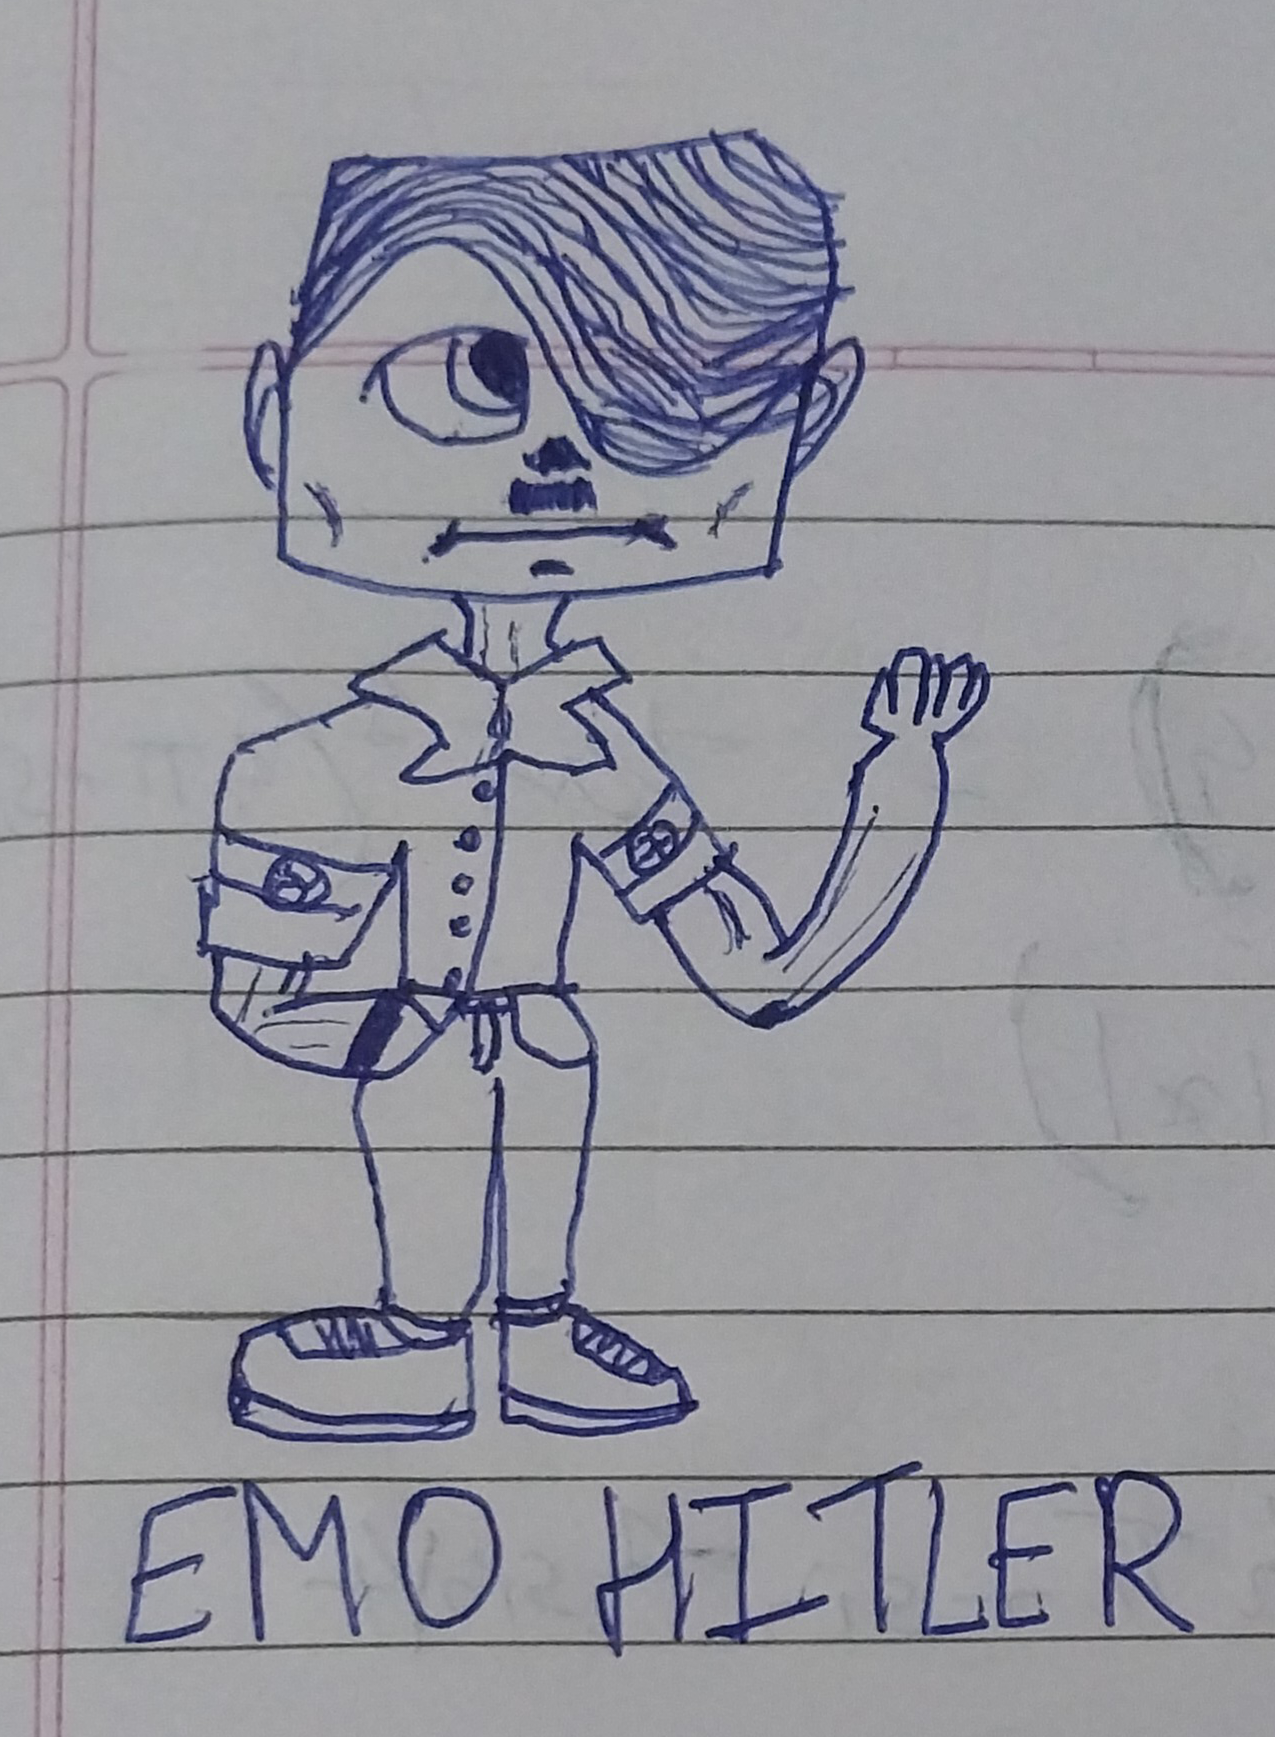 EMO HITLER